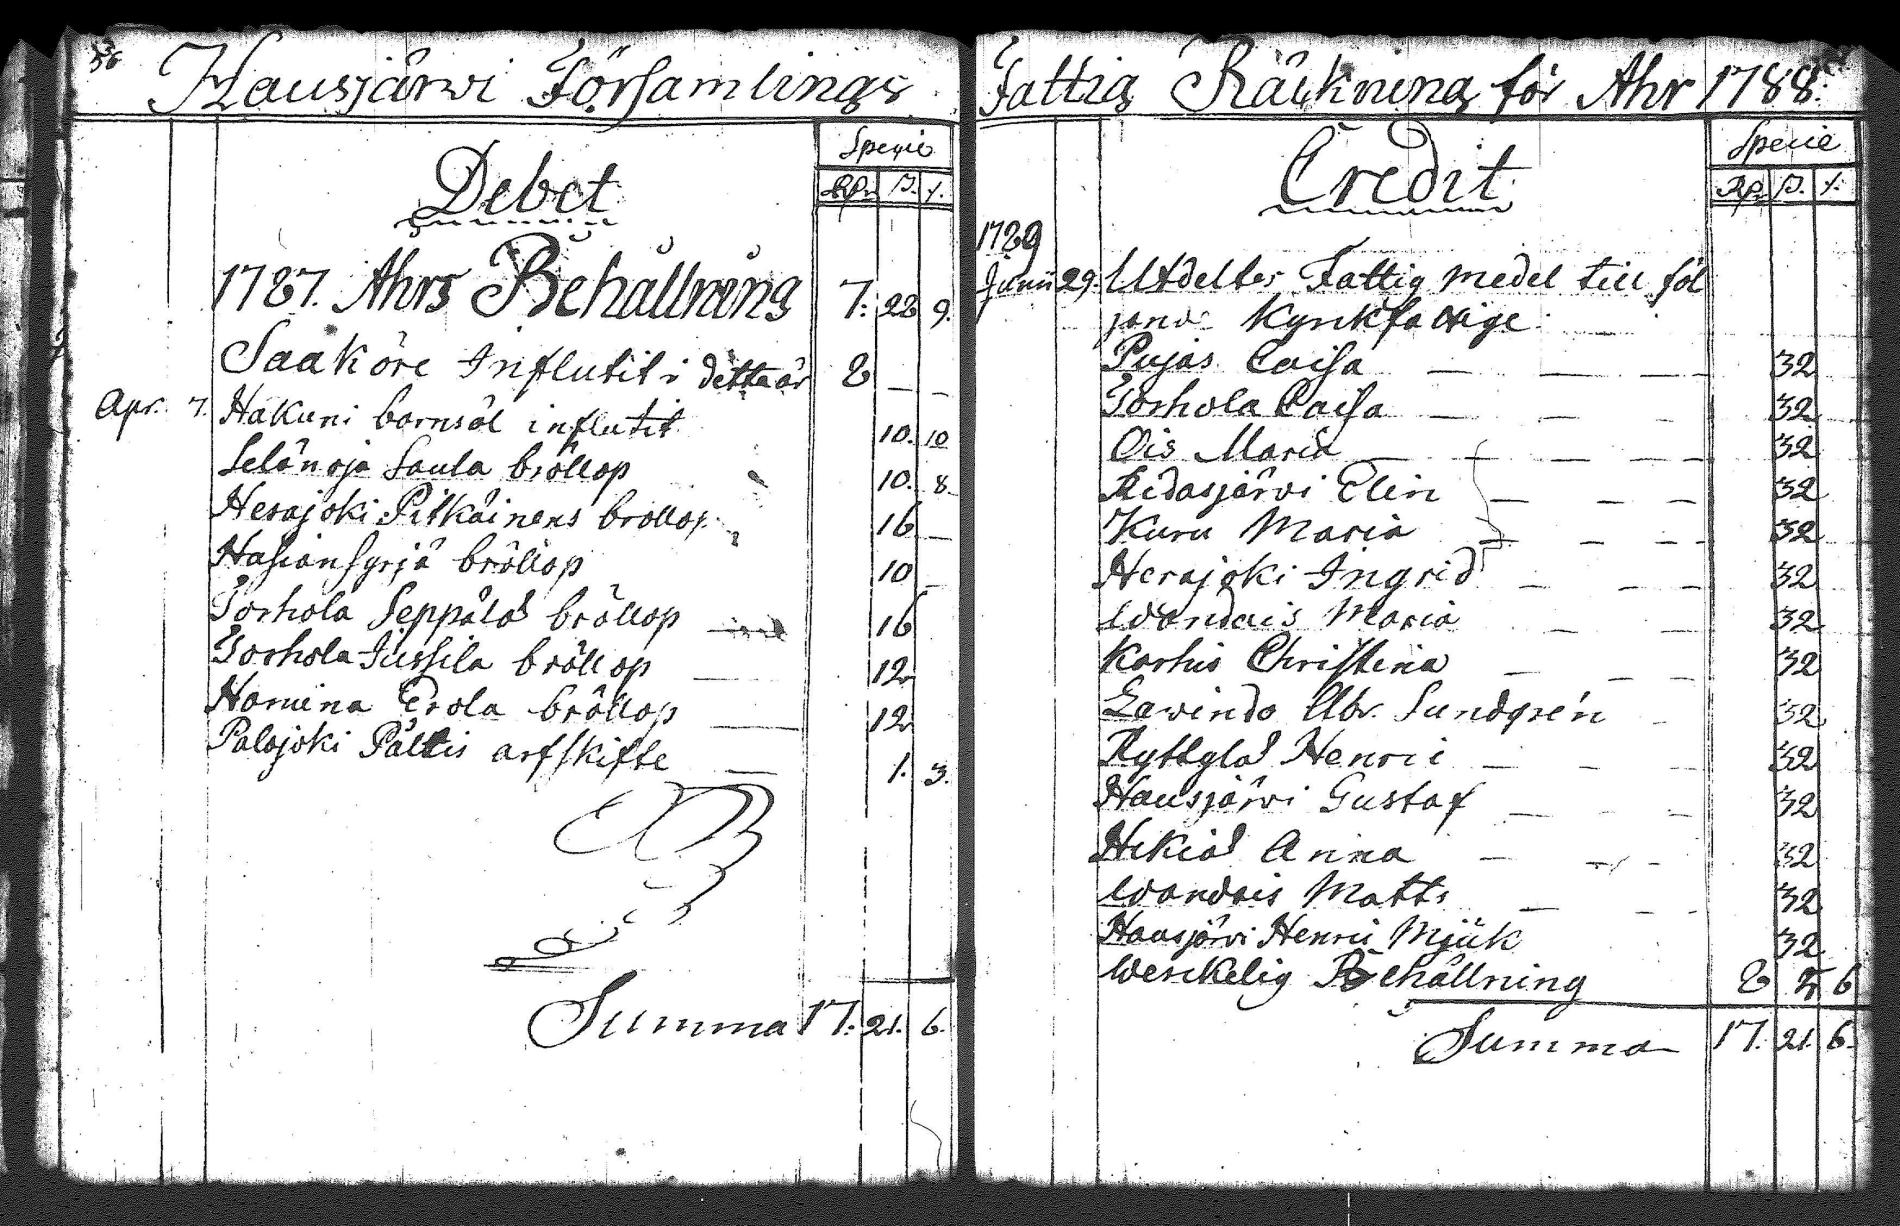 36
Hausjärwi Församlings
Specie
Debet
Rd. ß. r.
1787. Ahrs Behållning 7. 22 9.
Saaköre Influtit i detta år 8 — —
Apr. 7. Hakuni barnsöl influtit 10. 10
Selänoja Saula bröllop 10. 8.
Herajoki Pitkäinens bröllop 16 —
Hasiansyrjä bröllop 10 —
Torhola Seppälas bröllop — 16
Torhola Jussila bröllop — 12
Homina Erola bröllop — 12
Palojoki Pältis arfskifte — 1. 3.
Summa 17. 21. 6.
Fattig Räkning för Ahr 1788.
Specie
Credit
Rd. ß. r.
1789
Junii 29. Utdeltes Fattig medel till föl
jande Kyrkfattige
Pujas Caisa — — — 32
Torhola Caisa — — — 32
Ois Maria — — — — 32
Ridasjärvi Elin — — — 32
Kuru Maria — — — 32
Herajoki Ingrid — — — 32
Wandais Maria — — 32
Karhis Christina — — — 32
Lawindo Abr. Sundgrén — 32
Ryttylas Henric — — — 32
Hausjärwi Gustaf — — — 32
Hikias Anna — — — 32
Wandais Matts — — — 32
Hausjärwi Henric Mjuk 32
Werckelig Behållning 8 5 6
Summa 17. 21. 6.